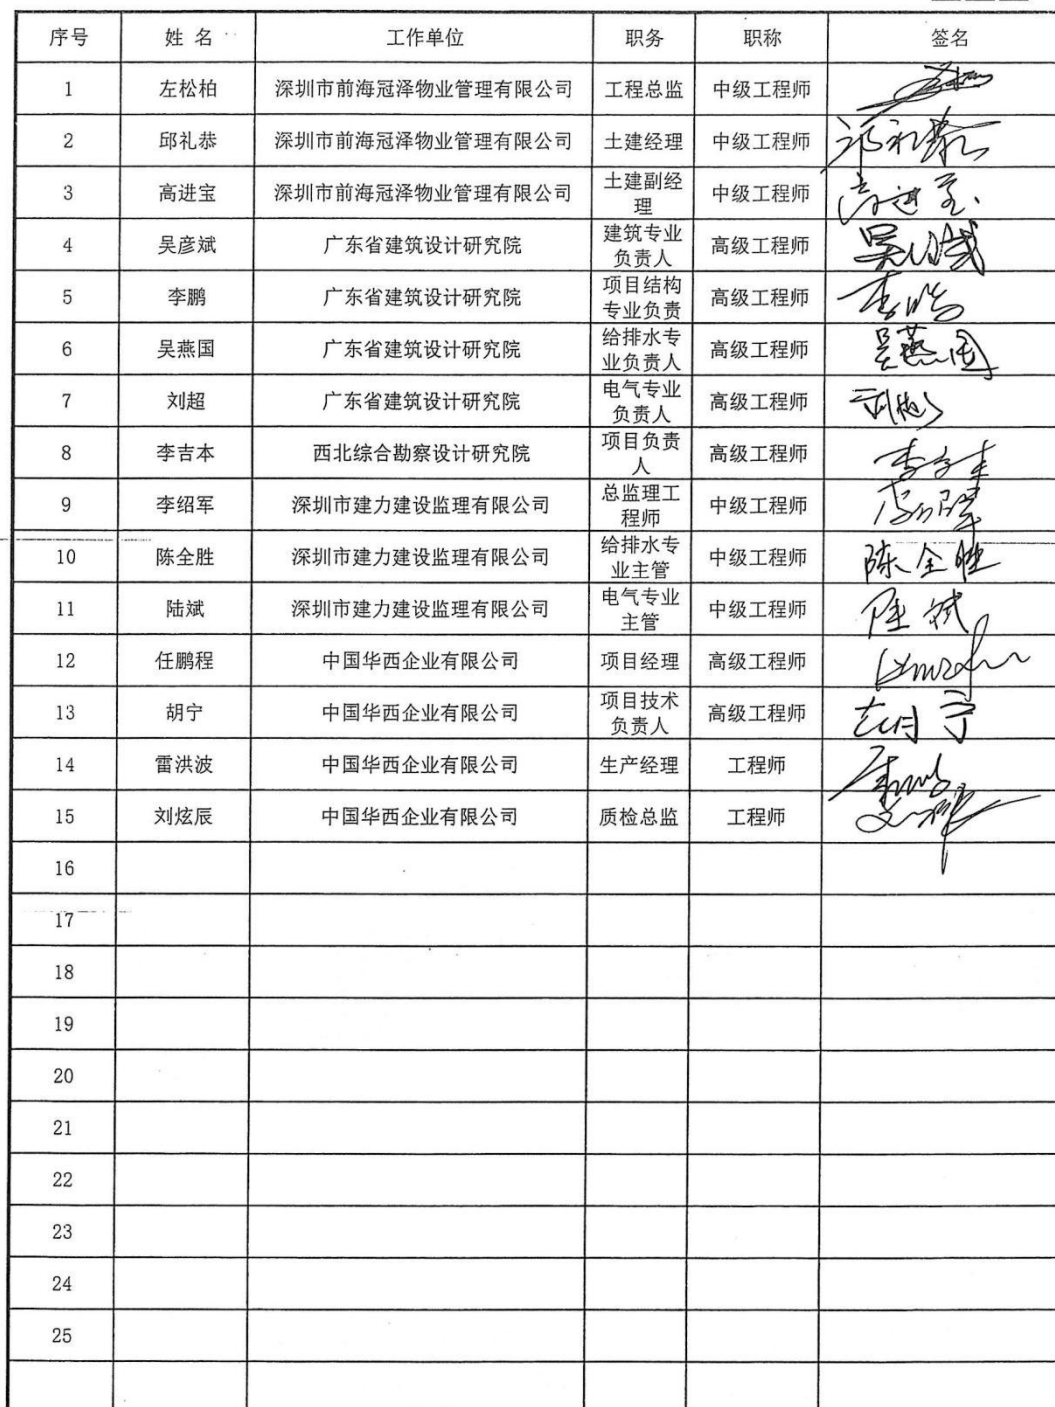 序号 姓 名 工作单位 职务 职称 签名
1 左松柏 深圳市前海冠泽物业管理有限公司 工程总监 中级工程师
2 邱礼恭 深圳市前海冠泽物业管理有限公司 土建经理 中级工程师 邱礼恭
3 高进宝 深圳市前海冠泽物业管理有限公司 土建副经理 中级工程师 高进宝
4 吴彦斌 广东省建筑设计研究院 建筑专业负责人 高级工程师 吴彦斌
5 李鹏 广东省建筑设计研究院 项目结构专业负责 高级工程师 李鹏
6 吴燕国 广东省建筑设计研究院 给排水专业负责人 高级工程师 吴燕国
7 刘超 广东省建筑设计研究院 电气专业负责人 高级工程师 刘超
8 李吉本 西北综合勘察设计研究院 项目负责人 高级工程师 李吉本
9 李绍军 深圳市建力建设监理有限公司 总监理工程师 中级工程师 李绍军
10 陈全胜 深圳市建力建设监理有限公司 给排水专业主管 中级工程师 陈全胜
11 陆斌 深圳市建力建设监理有限公司 电气专业主管 中级工程师 陆斌
12 任鹏程 中国华西企业有限公司 项目经理 高级工程师
13 胡宁 中国华西企业有限公司 项目技术负责人 高级工程师 胡宁
14 雷洪波 中国华西企业有限公司 生产经理 工程师
15 刘炫辰 中国华西企业有限公司 质检总监 工程师
16
17
18
19
20
21
22
23
24
25